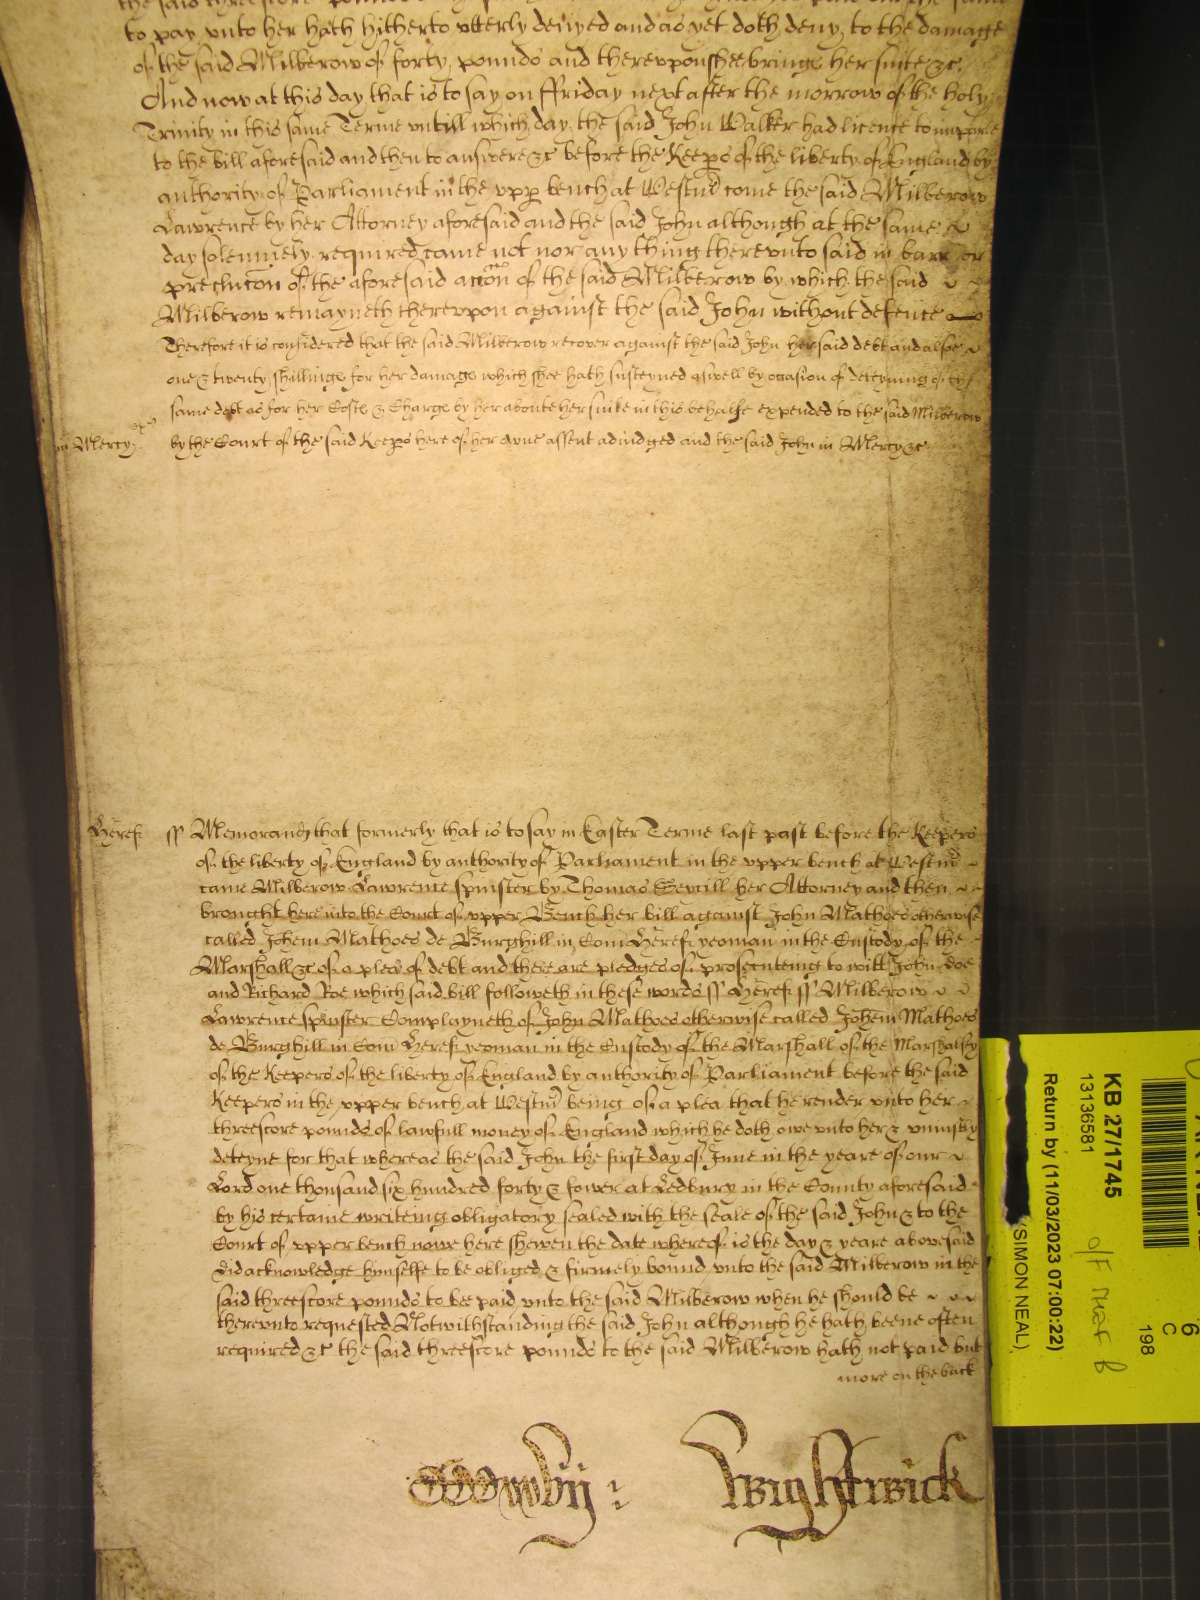 the said threescore pounds
to pay vnto her hath hitherto vtterly denyed and as yet doth deny, to the damage
of the said Milberow of forty pounds and therevpon shee brings her suite &c.
And now at this day, that is to say, on ffriday next after the morrow of the holy
Trinity in this same Terme vntill which day, the said John Walker had licence to imparle
to the bill aforesaid and then to answere &c before the Keeps of the liberty of England by
authority of Parliament in the vpp bench at Westm come the said Milberow
Lawrence by her Attorney aforesaid and the said John although at the same
day solemnely required came not nor any thing therevnto said in barr or
preclucon of the aforesaid accon of the said Milberow by which the said
Milberow remayneth therevpon against the said John without defence
Therefore it is considered that the said Milberow recover against the said John her said debt and alsoe
one & twenty shillings for her damags which shee hath susteyned aswell by ocasion of deteyning of ye
same debt as for her Costs & Chargs by her aboute her suite in this behalfe expended to the said Milberow
in Mercy by the Court of the said Keeps here of her owne assent adiudged and the said John in Mercy &c
Heref ss Memorand that formerly that is to say in Easter Terme last past before the Keepers
of the liberty of England by authority of Parliament in the vpper bench at Westm
came Milberow Lawrence spinster by Thomas her Attorney and then
brought here into the Court of vpper Bench her bill against John Mathoes otherwise
called Johem Mathoes de Burghill in Com Heref yeoman in the Custody of the
Marshall &c of a plea of debt and there are pledges of prosecuteing to witt John doe
and Richard Roe which said bill followeth in these words ss Heref ss Milberow
Lawrence spinster Complayneth of John Mathoes otherwise called Johem Mathoes
de Burghill in Com Heref yeoman in the Custody of the Marshall of the Marshalsey
of the Keepers of the liberty of England by authority of Parliament before the said
Keepers in the vpper bench at Westm being of a plea that he render vnto her
threescore pounds of lawfull money of England which he doth owe vnto her & vniustly
deteyne for that whereas the said John the first day of June in the yeare of our
Lord one thousand six hundred forty & fower at Ledbury in the County aforesaid
by his certaine writeing obligatory sealed with the seale of the said John & to the
Court of vpper bench nowe here shewen the date whereof is the day & yeare abovesaid
did acknowledge himselfe to be obliged & firmely bound vnto the said Milberow in the
said threescore pounds to bee paid vnto the said Milberow when he should be
therevnto requested Notwithstanding the said John although he hath beene often
required &c the said threescore pounds to the said Milberow hath not paid but
more on the back
Wightwick
KB 27/1745
13136581
Return by (11/03/2023 07:00:22)
(SIMON NEAL)
6
C
198